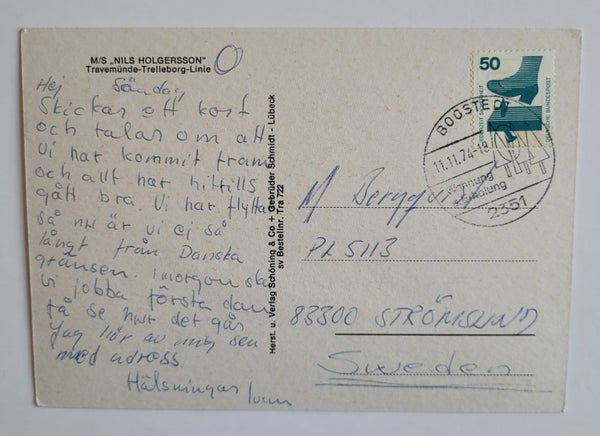 M/S „NILS HOLGERSSON"
Travemünde-Trelleborg-Linie
Hej Söndag
Skickar ett kort
och talar om att
vi har kommit fram
och allt har hittills
gått bra. Vi har flyttat
så nu är vi ej så
långt från Danska
gränsen. imorgon ska
vi jobba första dan
få se hur det går
Jag hör av mig sen
med adress.
Hälsningar
Herst. u. Verlag Schöning & Co + Gebrüder Schmidt - Lübeck
sv Bestellnr. Tra 722
50
DEUTSCHE BUNDESPOST
BOOSTEDT
11.11.74-18
Wohnung
Erholung
2351
M Bergqvist
PL 5113
83300 STRÖMSUND
Sweden